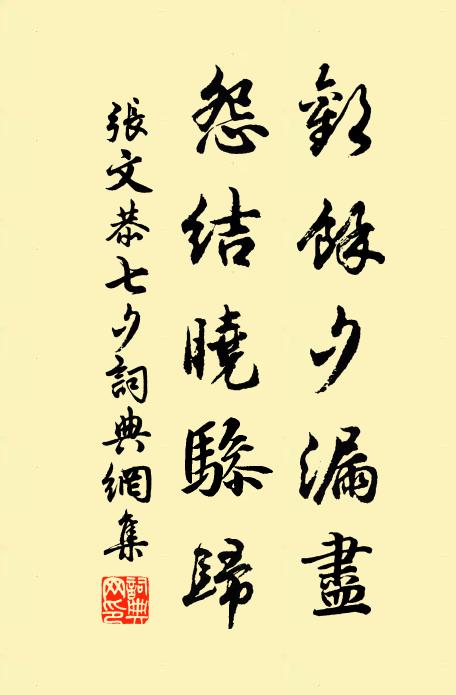 歡餘夕漏盡
怨結曉驂歸
張文恭七夕詞典網集
詞典網印